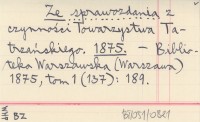 Ze sprawozdania z
czynności Towarzystwa Ta-
trzańskiego. 1875. – Biblio-
teka Warszawska (Warszawa)
1875, tom 1 (137): 189.
BZ